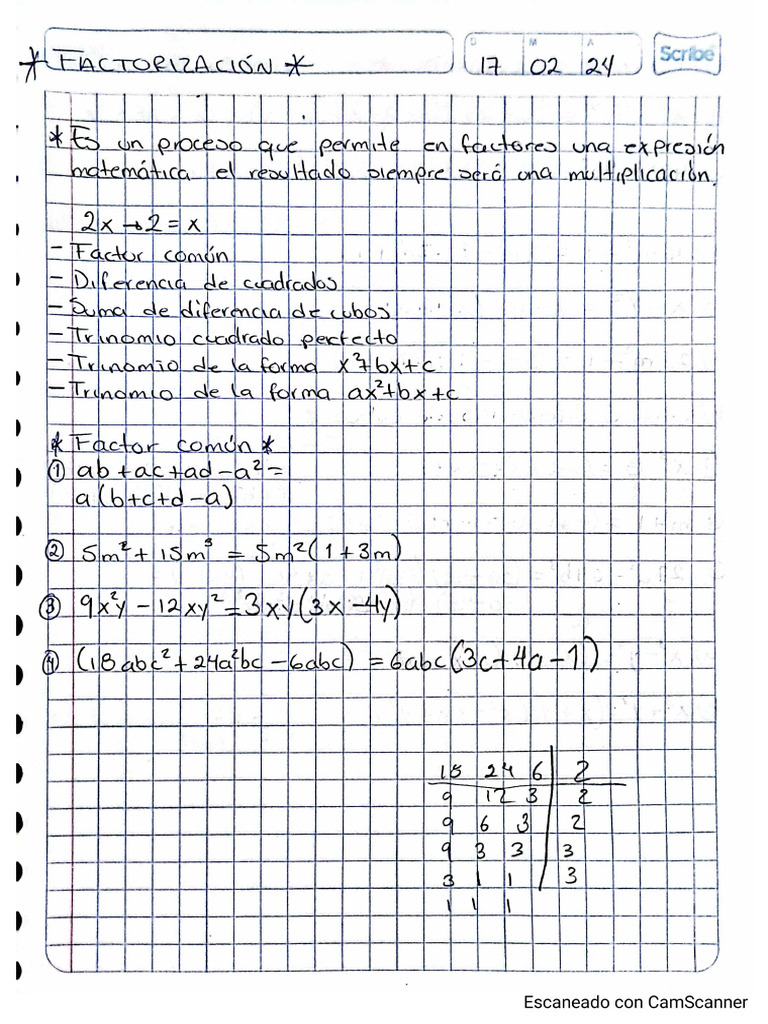 * FACTORIZACIÓN *
D M A
17 02 24
Scribe
* Es un proceso que permite en factores una expresión
matemática el resultado siempre será una multiplicación.
2x → 2 = x
- Factor común
- Diferencia de cuadrados
- Suma de diferencia de cubos
- Trinomio cuadrado perfecto
- Trinomio de la forma x²+bx+c
- Trinomio de la forma ax²+bx+c
* Factor común *
① ab+ac+ad-a²=
a(b+c+d-a)
② 5m² + 15m³ = 5m²(1+3m)
③ 9x²y - 12xy² = 3xy(3x-4y)
④ (18abc² + 24a²bc - 6abc) = 6abc(3c+4a-1)
18 24 6 | 2
9 12 3 | 2
9 6 3 | 2
9 3 3 | 3
3 1 1 | 3
1 1 1
Escaneado con CamScanner